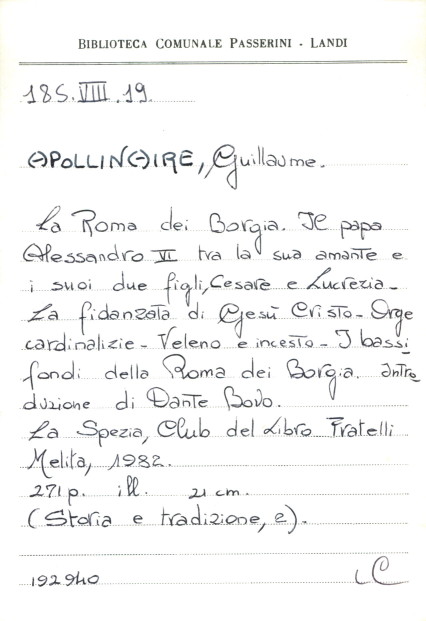 BIBLIOTECA COMUNALE PASSERINI - LANDI
185.VIII.19.
APOLLINAIRE, Guillaume.
La Roma dei Borgia. Il papa
Alessandro VI tra la sua amante e
i suoi due figli, Cesare e Lucrezia -
La fidanzata di Gesù Cristo - Orge
cardinalizie - Veleno e incesto - I bassi
fondi della Roma dei Borgia. Intro
duzione di Dante Bovo.
La Spezia, Club del Libro Fratelli
Melita, 1982.
271 p. ill. 21 cm.
(Storia e tradizione, 2).
192940